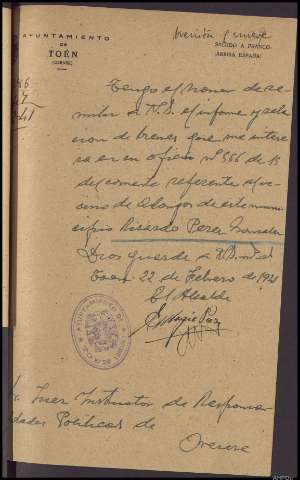 AYUNTAMIENTO
DE
TOÉN
(ORENSE)
SALUDO A FRANCO:
¡ARRIBA ESPAÑA!
Tengo el honor de re-
mitir a V.S. el informe y rela-
cion de bienes que me intere-
sa en su oficio nº 566 de 15
del corriente referente al ve-
cino de de este muni-
cipio Ricardo Perez Gonzalez
Dios guarde a V.S. m. a.
Toen 22 de Febrero de 1941
El Alcalde
AYUNTAMIENTO
Sr. Juez Instructor de Responsa-
bilidades Politicas de
Orense